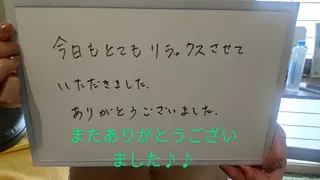 今日もとてもリラックスさせて
いただきました.
ありがとうございました.
またありがとうござい
ました♪♪